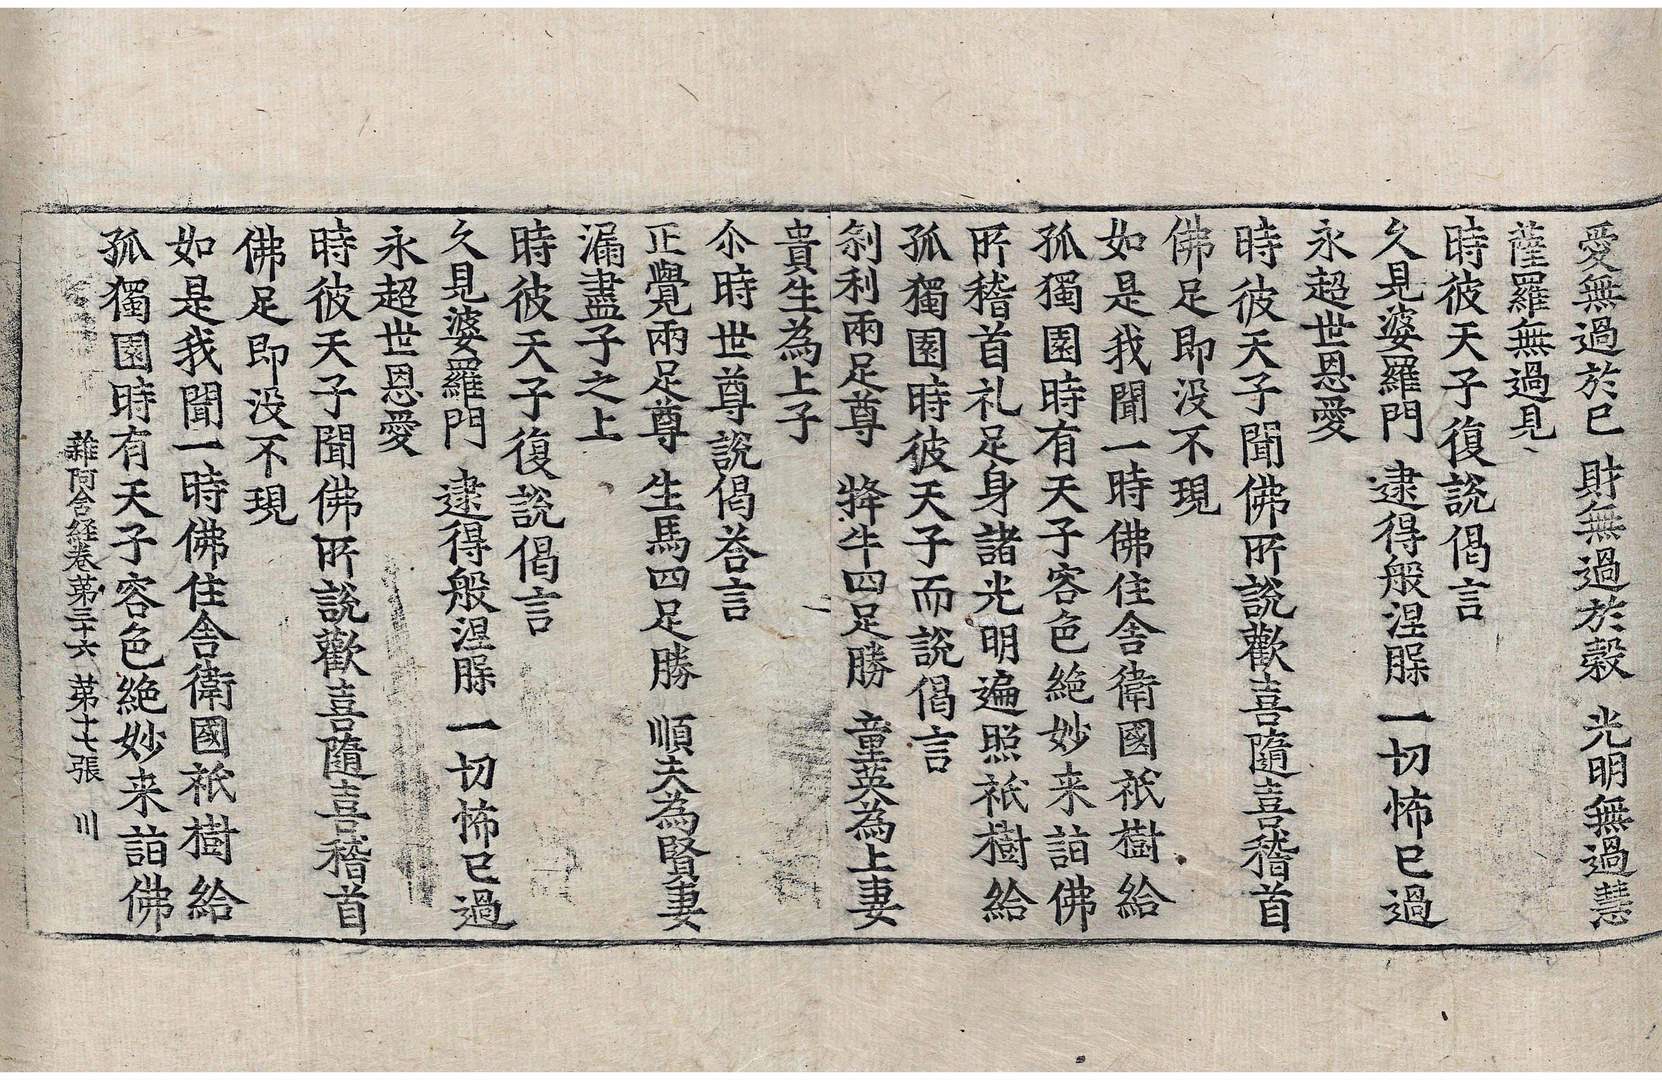 愛無過於已　財無過於穀　光明無過慧
薩羅無過見
時彼天子復說偈言
久見婆羅門　逮得般涅䏶一切怖已過
永超世恩愛
時彼天子聞佛所說歡喜隨喜稽首
佛足即没不現
如是我聞一時佛住舍衛國祇樹給
孤獨園時有天子容色絶妙来詣佛
所稽首礼足身諸光明遍照祇樹給
孤獨園時彼天子而說偈言
刹利兩足尊　㸼牛四足勝　童英為上妻
貴生為上子
尒時世尊說偈荅言
正覺兩足尊　生馬四足勝　順夫為賢妻
漏盡子之上
時彼天子復說偈言
久見婆羅門　逮得般涅䏶一切怖已過
永超世恩愛
時彼天子聞佛所說歡喜隨喜稽首
佛足即没不現
如是我聞一時佛住舍衛國祇樹給
孤獨園時有天子容色絶妙来詣佛
雜阿含経卷苐三十六　苐十七張　川